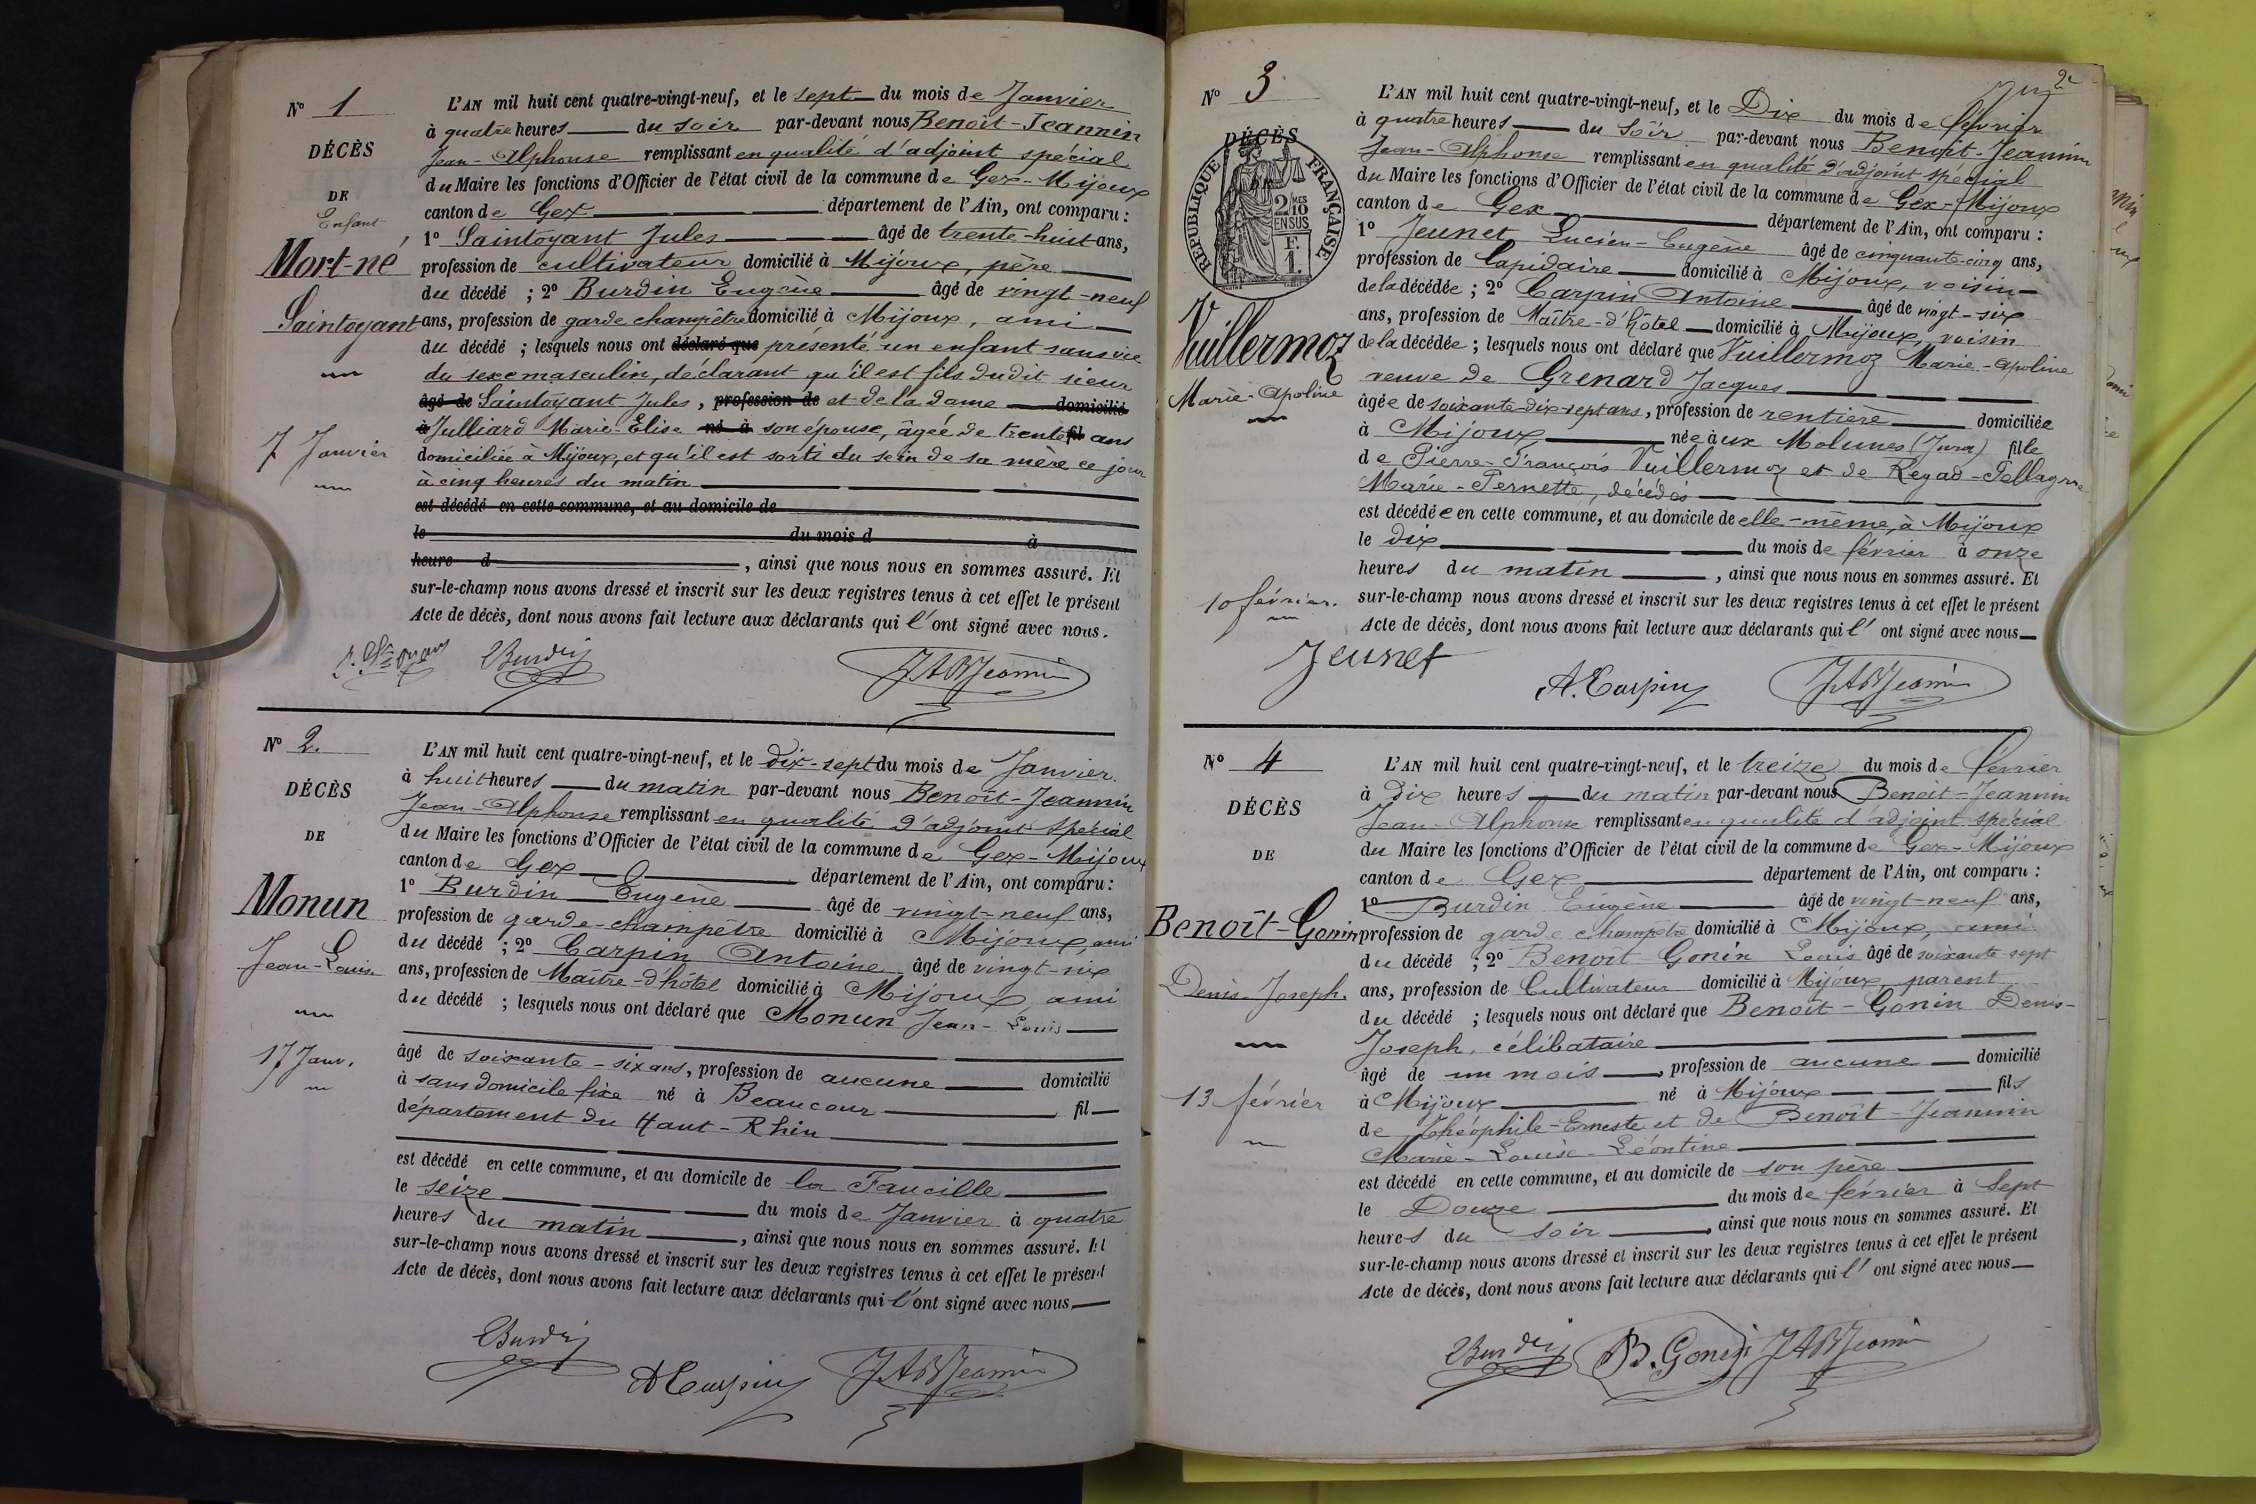 N° 1
DÉCÈS
DE
Enfant
Mort-né
Saintoyant
7 Janvier
L'AN mil huit cent quatre-vingt-neuf, et le sept du mois de Janvier
à quatre heures du soir par-devant nous Benoit-Jeannin
Jean-Alphonse remplissant en qualité d'adjoint spécial
du Maire les fonctions d'Officier de l'état civil de la commune de Gex-Mijoux
canton de Gex département de l'Ain, ont comparu :
1° Saintoyant Jules âgé de trente-huit ans,
profession de cultivateur domicilié à Mijoux, père
du décédé ; 2° Burdin Eugène âgé de vingt-neuf
ans, profession de garde champêtre domicilié à Mijoux, ami
du décédé ; lesquels nous ont déclaré que présenté un enfant sans vie
du sexe masculin, déclarant qu'il est fils dudit sieur
âgé de Saintoyant Jules, profession de et de la dame domicilié
à Julliard Marie-Elise né à son épouse, âgée de trente fil ans
domiciliée à Mijoux, et qu'il est sorti du sein de sa mère ce jour
à cinq heures du matin
est décédé en cette commune, et au domicile de
le du mois d à
heure d , ainsi que nous nous en sommes assuré. Et
sur-le-champ nous avons dressé et inscrit sur les deux registres tenus à cet effet le présent
Acte de décès, dont nous avons fait lecture aux déclarants qui l'ont signé avec nous.
Burdin JABJeannin
N° 2.
DÉCÈS
DE
Monun
Jean-Louis
17 Janv.
L'AN mil huit cent quatre-vingt-neuf, et le dix-sept du mois de Janvier.
à huit heures du matin par-devant nous Benoit-Jeannin
Jean-Alphonse remplissant en qualité d'adjoint spécial
du Maire les fonctions d'Officier de l'état civil de la commune de Gex-Mijoux
canton de Gex département de l'Ain, ont comparu :
1° Burdin Eugène âgé de vingt-neuf ans,
profession de garde-champêtre domicilié à Mijoux, ami
du décédé ; 2° Carpin Antoine âgé de vingt-six
ans, profession de Maître-d'hôtel domicilié à Mijoux, ami
du décédé ; lesquels nous ont déclaré que Monun Jean-Louis
âgé de soixante-six ans, profession de aucune domicilié
à sans domicile fixe né à Beaucour fil
département du Haut-Rhin
est décédé en cette commune, et au domicile de la Faucille
le seize du mois de Janvier à quatre
heures du matin , ainsi que nous nous en sommes assuré. Et
sur-le-champ nous avons dressé et inscrit sur les deux registres tenus à cet effet le présent
Acte de décès, dont nous avons fait lecture aux déclarants qui l'ont signé avec nous
Burdin
A Carpin JABJeannin
2
N° 3
DÉCÈS
RÉPUBLIQUE FRANÇAISE
2 MES
10
EN SUS
F.
1.
Vuillermoz
Marie-Apoline
10 février.
L'AN mil huit cent quatre-vingt-neuf, et le Dix du mois de février
à quatre heures du Soir par-devant nous Benoit-Jeannin
Jean-Alphonse remplissant en qualité d'adjoint spécial
du Maire les fonctions d'Officier de l'état civil de la commune de Gex-Mijoux
canton de Gex département de l'Ain, ont comparu :
1° Jeunet Lucien-Eugène âgé de cinquante-cinq ans,
profession de lapidaire domicilié à Mijoux, voisin
de la décédée ; 2° Carpin Antoine âgé de vingt-six
ans, profession de Maître-d'hôtel domicilié à Mijoux, voisin
de la décédée ; lesquels nous ont déclaré que Vuillermoz Marie-Apoline
veuve de Grenard Jacques
âgée de soixante-dix-sept ans, profession de rentière domiciliée
à Mijoux née aux Molunes (Jura) fille
de Pierre-François Vuillermoz et de Regad-Pellagru
Marie-Pernette, décédés
est décédée en cette commune, et au domicile de elle-même, à Mijoux
le dix du mois de février à onze
heures du matin , ainsi que nous nous en sommes assuré. Et
sur-le-champ nous avons dressé et inscrit sur les deux registres tenus à cet effet le présent
Acte de décès, dont nous avons fait lecture aux déclarants qui l'ont signé avec nous
Jeunet
A. Carpin JABJeannin
N° 4
DÉCÈS
DE
Benoît-Gonin
Denis-Joseph.
13 février
L'AN mil huit cent quatre-vingt-neuf, et le treize du mois de février
à dix heures du matin par-devant nous Benoit-Jeannin
Jean-Alphonse remplissant en qualité d'adjoint spécial
du Maire les fonctions d'Officier de l'état civil de la commune de Gex-Mijoux
canton de Gex département de l'Ain, ont comparu :
1° Burdin Eugène âgé de vingt-neuf ans,
profession de garde champêtre domicilié à Mijoux, ami
du décédé ; 2° Benoit-Gonin Louis âgé de soixante sept
ans, profession de Cultivateur domicilié à Mijoux, parent
du décédé ; lesquels nous ont déclaré que Benoît-Gonin Denis-
Joseph, célibataire
âgé de un mois, profession de aucune domicilié
à Mijoux né à Mijoux fils
de Théophile-Erneste et de Benoît-Jeannin
Marie-Louise-Léontine
est décédé en cette commune, et au domicile de son père
le Douze du mois de février à Sept
heures du soir , ainsi que nous nous en sommes assuré. Et
sur-le-champ nous avons dressé et inscrit sur les deux registres tenus à cet effet le présent
Acte de décès, dont nous avons fait lecture aux déclarants qui l'ont signé avec nous
Burdin B. Gonin JABJeannin